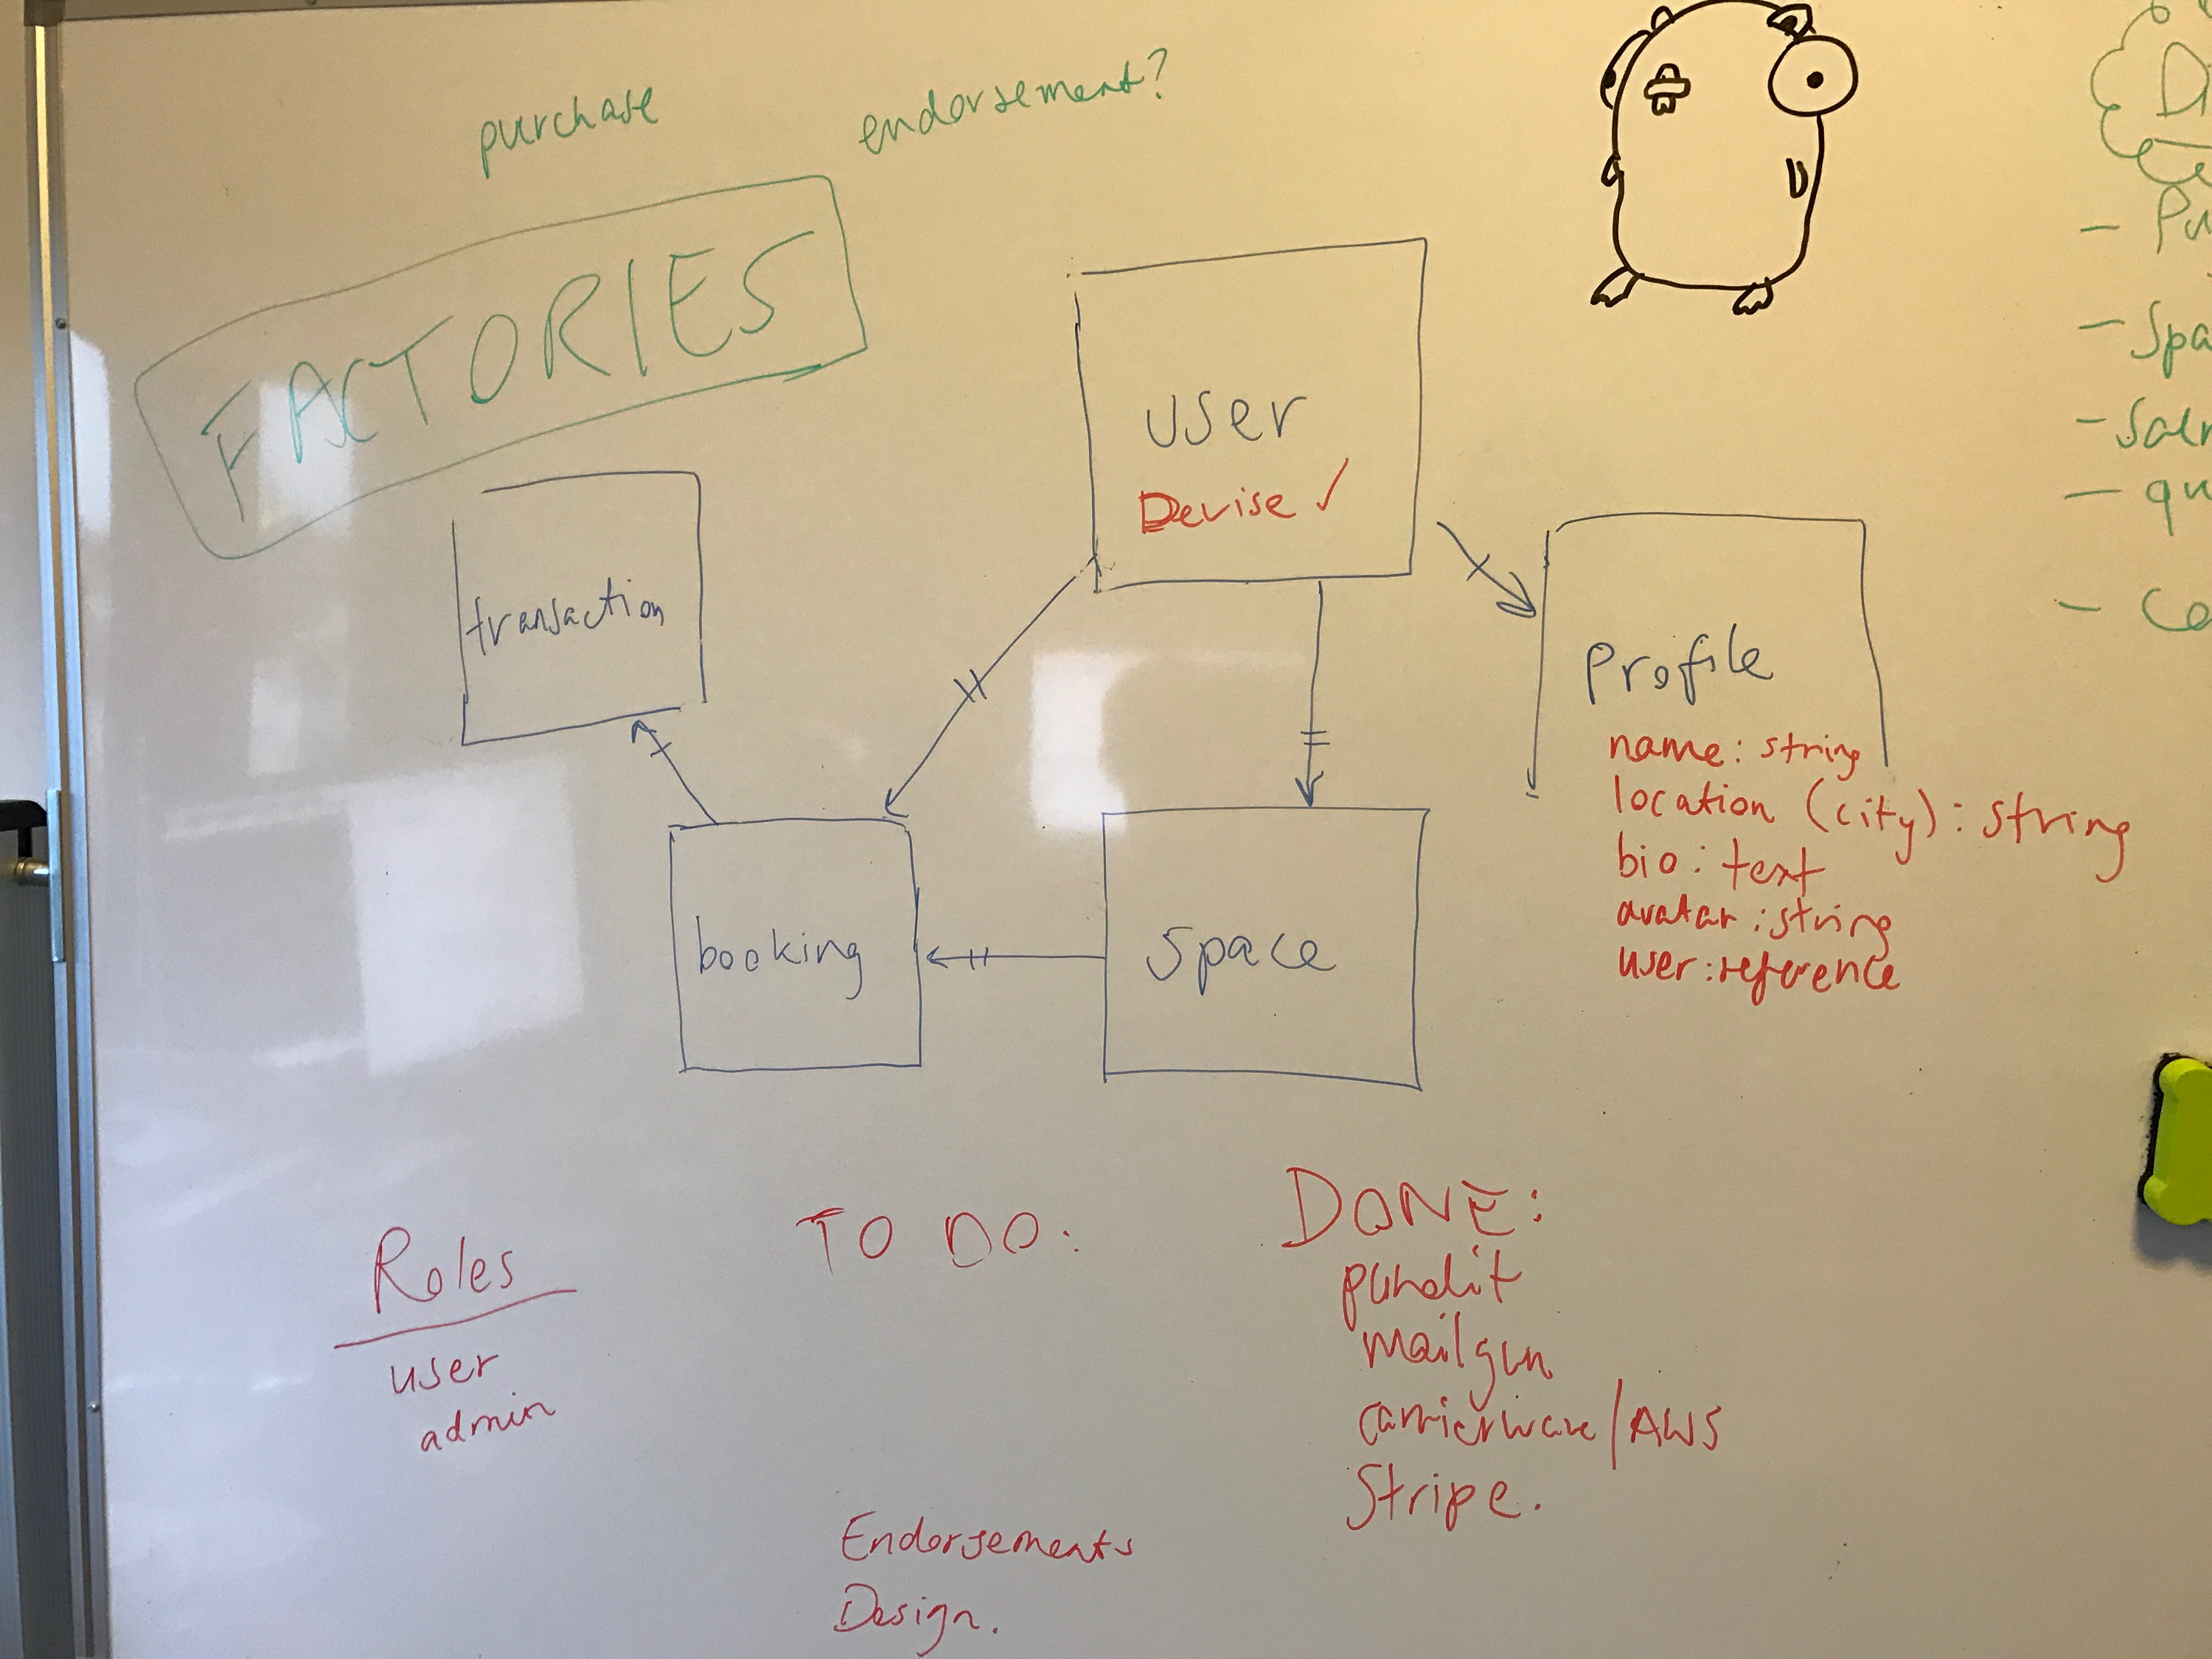 purchase
endorsement?
FACTORIES
user
Devise ✓
transaction
profile
name: string
location (city): string
bio: text
avatar: string
user: reference
booking
space
Roles
user
admin
TO DO:
Endorsements
Design.
DONE:
pundit
mailgun
carrierwave/AWS
Stripe.